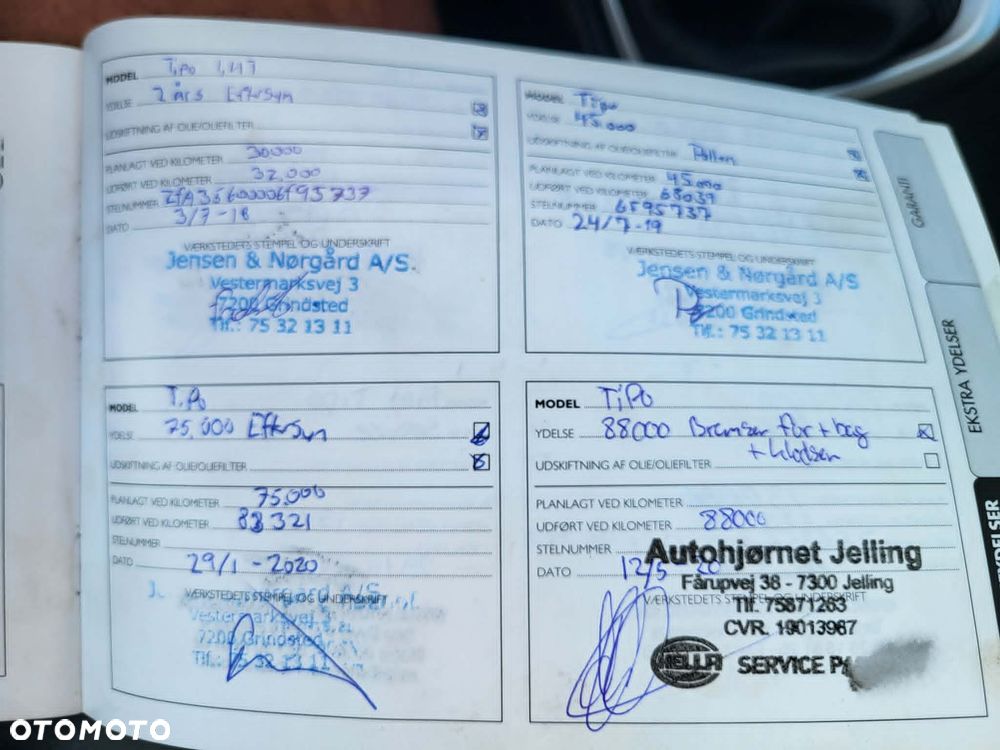 MODEL Tipo 1,4 T
YDELSE 2 års Eftersyn
UDSKIFTNING AF OLIE/OLIEFILTER
PLANLAGT VED KILOMETER 30000
UDFØRT VED KILOMETER 32,000
STELNUMMER
DATO 3/7-18
VÆRKSTEDETS STEMPEL OG UNDERSKRIFT
Jensen & Nørgård A/S.
Vestermarksvej 3
7200 Grindsted
Tlf.: 75 32 13 11
MODEL Tipo
YDELSE 45.000
UDSKIFTNING AF OLIE/OLIEFILTER Pollen
PLANLAGT VED KILOMETER 45.000
UDFØRT VED KILOMETER 68039
STELNUMMER 6F95737
DATO 24/7-19
VÆRKSTEDETS STEMPEL OG UNDERSKRIFT
Jensen & Nørgård A/S
Vestermarksvej 3
7200 Grindsted
Tlf.: 75 32 13 11
MODEL Tipo
YDELSE 75,000 Eftersyn
UDSKIFTNING AF OLIE/OLIEFILTER
PLANLAGT VED KILOMETER 75.000
UDFØRT VED KILOMETER 83321
STELNUMMER
DATO 29/1-2020
VÆRKSTEDETS STEMPEL OG UNDERSKRIFT
Vestermarksvej 3
7200 Grindsted
Tlf.: 75 32 13 11
MODEL TiPo
YDELSE 88000 Bremser for + bag
+ klodser
UDSKIFTNING AF OLIE/OLIEFILTER
PLANLAGT VED KILOMETER
UDFØRT VED KILOMETER 88000
STELNUMMER
DATO 12/5 20
VÆRKSTEDETS STEMPEL OG UNDERSKRIFT
Autohjørnet Jelling
Fårupvej 38 - 7300 Jelling
Tlf. 75871263
CVR. 19013967
HELLA SERVICE
GARANTI
EKSTRA YDELSER
YDELSER
OTOMOTO